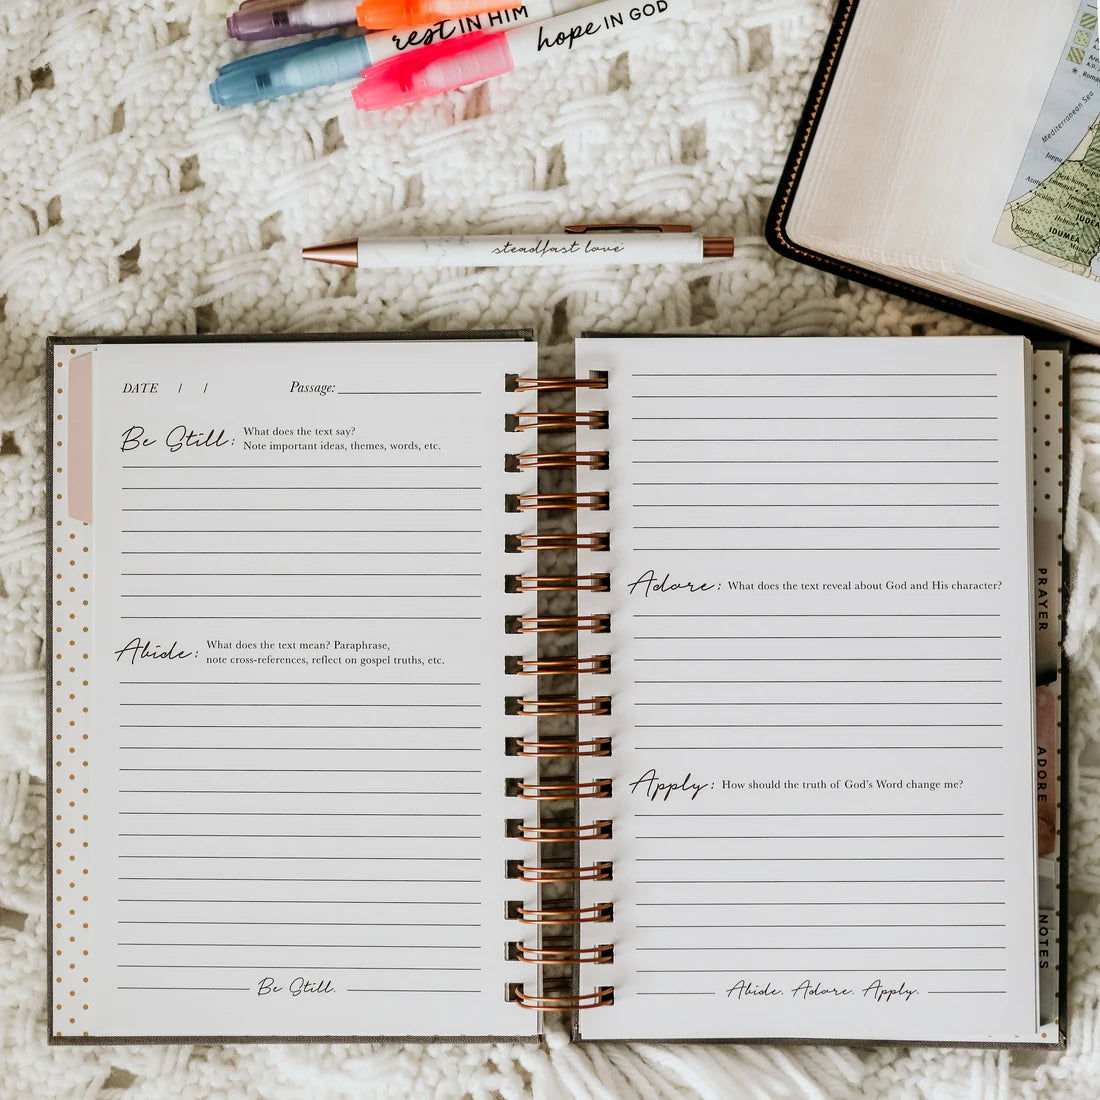 rest IN HIM
hope IN GOD
steadfast love
Mediterranean Sea
Joppa
Emmaus
Gaza
IDUMEA
DATE / /
Passage:
Be Still: What does the text say?
Note important ideas, themes, words, etc.
Abide: What does the text mean? Paraphrase,
note cross-references, reflect on gospel truths, etc.
Be Still.
Adore: What does the text reveal about God and His character?
Apply: How should the truth of God's Word change me?
Abide. Adore. Apply.
PRAYER
ADORE
NOTES